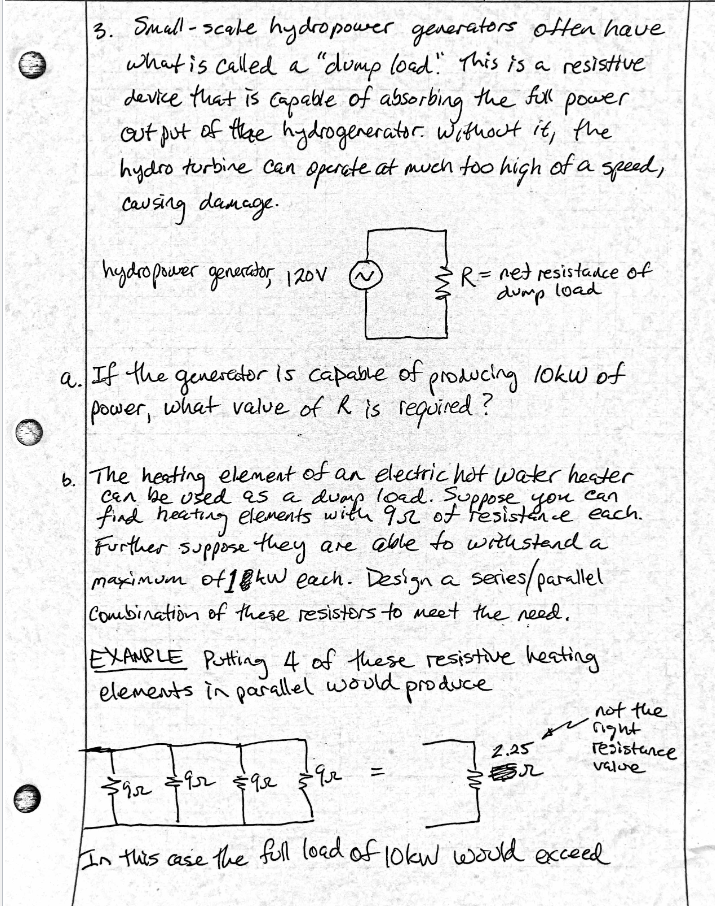 3. Small-scale hydropower generators often have
what is called a "dump load." This is a resistive
device that is capable of absorbing the full power
output of the hydrogenerator. Without it, the
hydro turbine can operate at much too high of a speed,
causing damage.
hydropower generator, 120V
R = net resistance of
dump load
a. If the generator is capable of producing 10kW of
power, what value of R is required?
b. The heating element of an electric hot water heater
can be used as a dump load. Suppose you can
find heating elements with 9Ω of resistance each.
Further suppose they are able to withstand a
maximum of 1 kW each. Design a series/parallel
combination of these resistors to meet the need.
EXAMPLE Putting 4 of these resistive heating
elements in parallel would produce
not the
right
resistance
value
9Ω 9Ω 9Ω 9Ω = 2.25 Ω
In this case the full load of 10kW would exceed